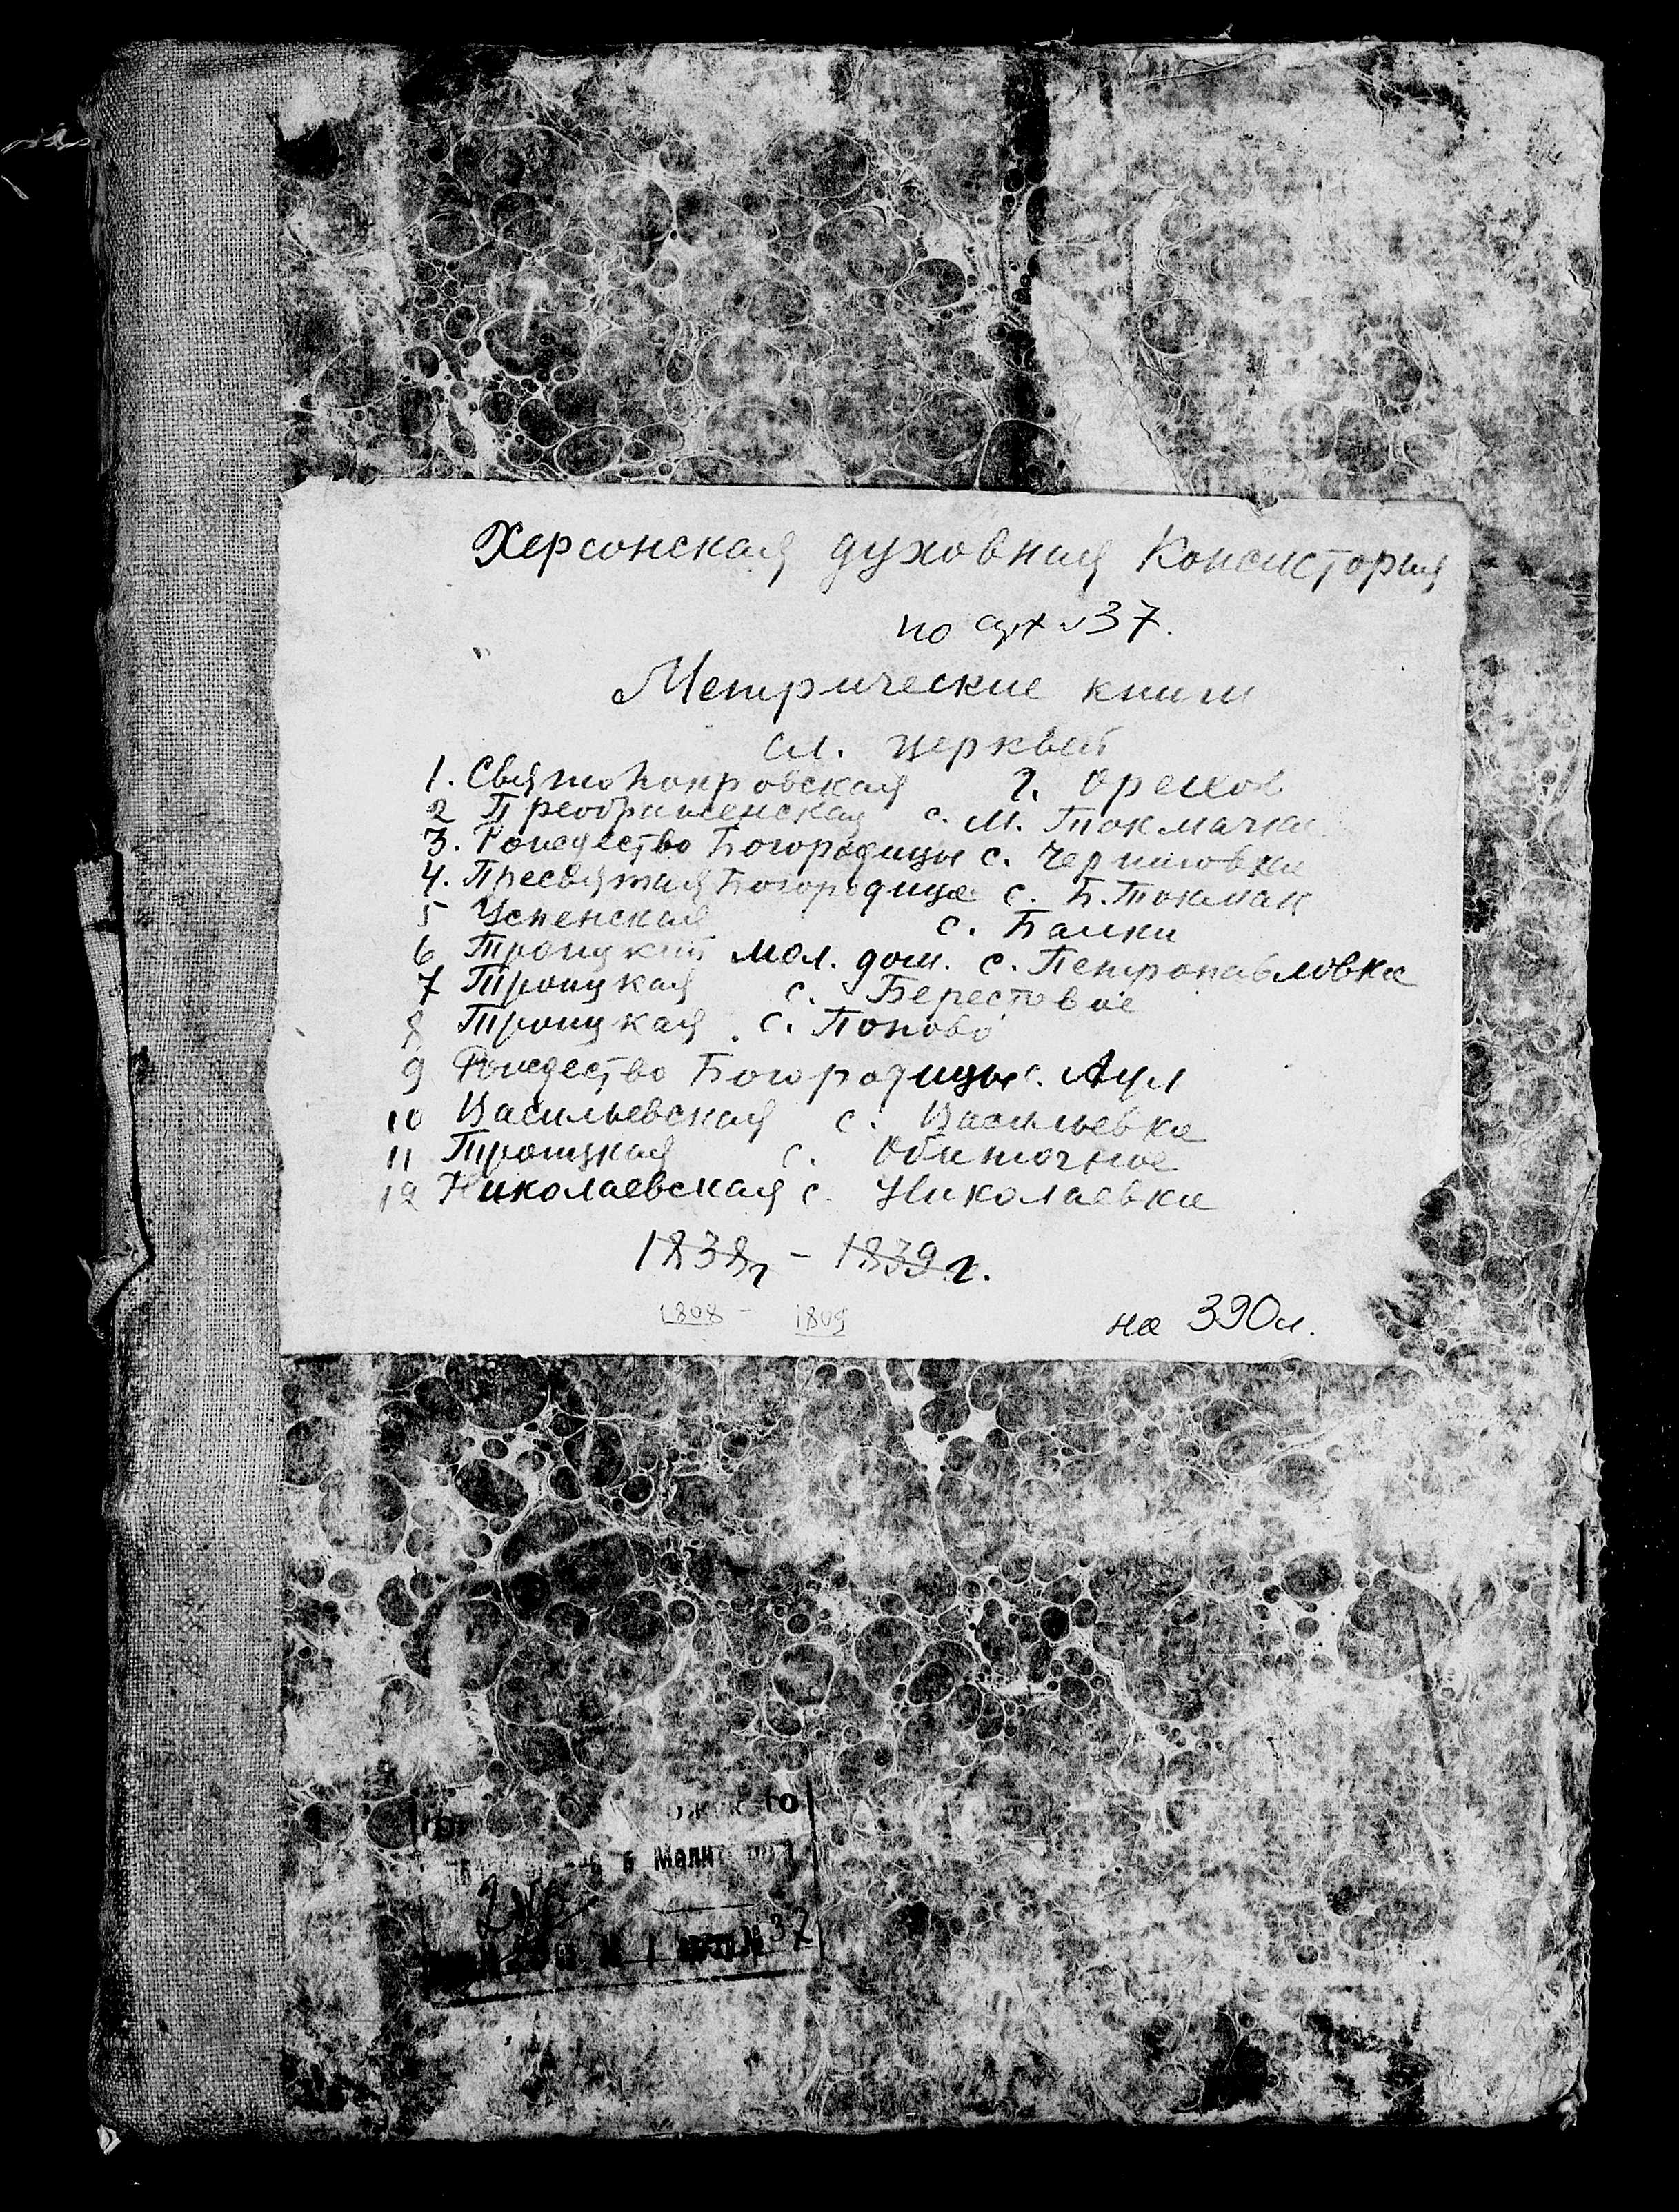 Херсонская духовная Консистория
по арх №37.
Метрические книги
сл. церквей
1. СвятоПокровская г. Орехов
2 Преображенская с. М. Токмачка
3. Рождество Богородицы с. Черниговка
4. Пресвятыя Богородица с. Б. Токмак
5 Успенская с. Балки
6 Троицкий мол. дом. с. Петропавловка
7 Троицкая с. Берестовое
8 Троицкая с. Попово
9 Рождество Богородицы с. Аул
10 Васильевская с. Васильевка
11 Троицкая с. Обиточное
12 Николаевская с. Николаевка
1838г - 1839 г.
1808 - 1809
на 390л.
37